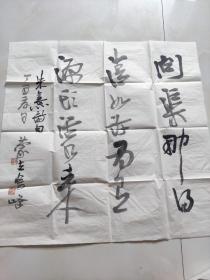 问渠那得
清如许为有
源头活水来
朱熹诗句
丁酉年